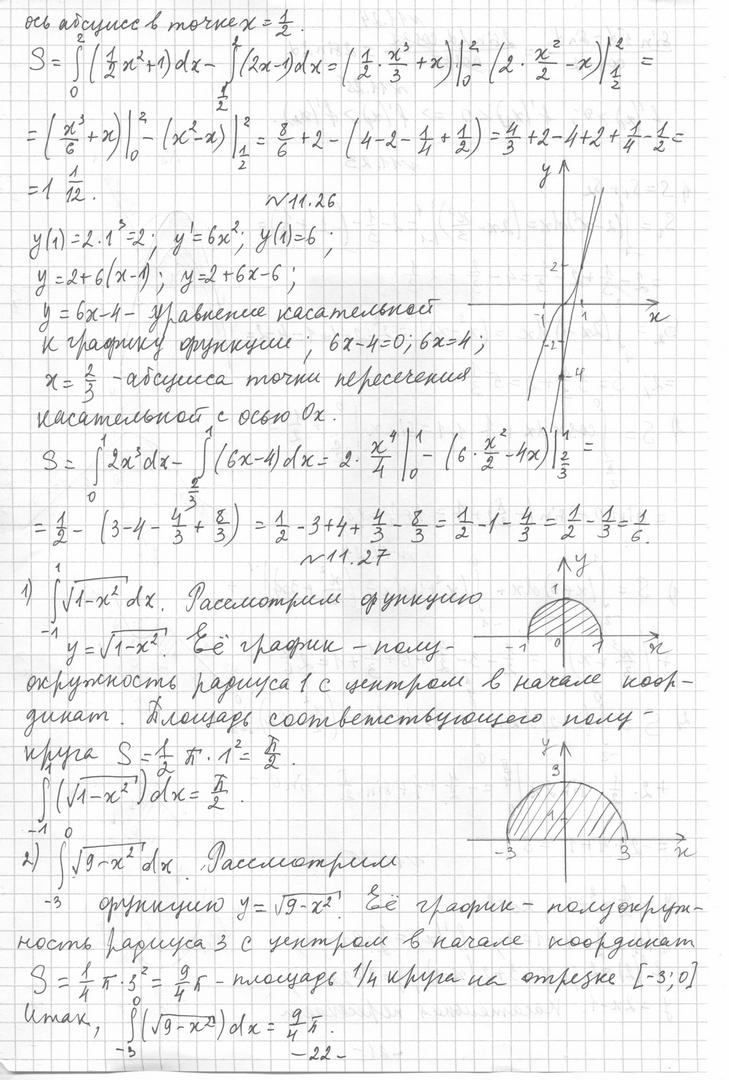 ось абсцисс в точке x = 1/2.
S = ∫₀² (1/2 x² + 1) dx − ∫_{1/2}² (2x−1) dx = (1/2 · x³/3 + x) |₀² − (2 · x²/2 − x) |_{1/2}² =
= (x³/6 + x) |₀² − (x² − x) |_{1/2}² = 8/6 + 2 − (4 − 2 − 1/4 + 1/2) = 4/3 + 2 − 4 + 2 + 1/4 − 1/2 =
= 1 1/12.
№11.26
y(1) = 2·1³ = 2; y' = 6x²; y(1) = 6;
y = 2+6(x−1); y = 2+6x−6;
y = 6x−4 – уравнение касательной
к графику функции; 6x−4=0; 6x=4;
x = 2/3 – абсцисса точки пересечения
касательной с осью Ox.
y
2
-1 1 x
-2
-4
S = ∫₀¹ 2x³dx − ∫_{2/3}¹ (6x−4) dx = 2 · x⁴/4 |₀¹ − (6 · x²/2 − 4x) |_{2/3}¹ =
= 1/2 − (3 − 4 − 4/3 + 8/3) = 1/2 − 3 + 4 + 4/3 − 8/3 = 1/2 − 1 − 4/3 = 1/2 − 1/3 = 1/6.
№11.27
1) ∫₋₁¹ √(1−x²) dx. Рассмотрим функцию
y = √(1−x²). Её график – полу-
окружность радиуса 1 с центром в начале коор-
динат. Площадь соответствующего полу-
круга S = 1/2 π · 1² = π/2.
∫₋₁¹ (√(1−x²)) dx = π/2.
y
1
-1 0 1 x
2) ∫₋₃⁰ √(9−x²) dx. Рассмотрим
функцию y = √(9−x²). Её график – полуокруж-
ность радиуса 3 с центром в начале координат
S = 1/4 π · 3² = 9/4 π – площадь 1/4 круга на отрезке [-3; 0]
Итак, ∫₋₃⁰ (√(9−x²)) dx = 9/4 π.
y
3
1
-3 3 x
-22-